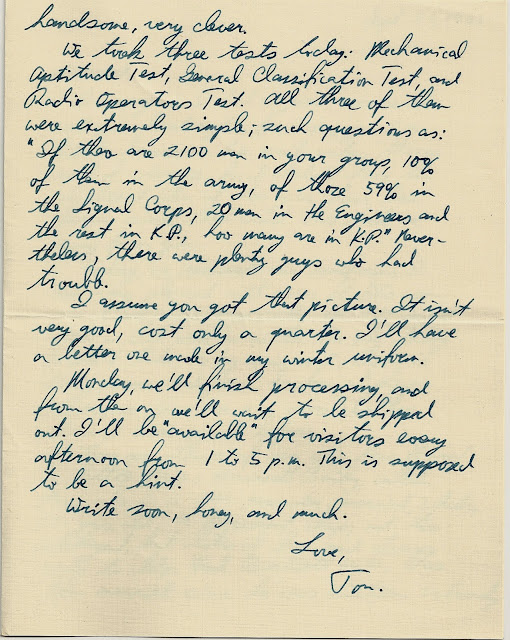 handsome, very clever.
We took three tests today: Mechanical
Aptitude Test, General Classification Test, and
Radio Operators Test. All three of them
were extremely simple; such questions as:
"If there are 2100 men in your group, 10%
of them in the army, of those 59% in
the Signal Corps, 20 men in the Engineers and
the rest in K.P., how many are in K.P." Never-
theless, there were plenty guys who had
trouble.
I assume you got that picture. It isn't
very good, cost only a quarter. I'll have
a better one made in my winter uniform.
Monday, we'll finish processing and
from then on we'll wait to be shipped
out. I'll be "available" for visitors every
afternoon from 1 to 5 p.m. This is supposed
to be a hint.
Write soon, honey, and much.
Love,
Tom.